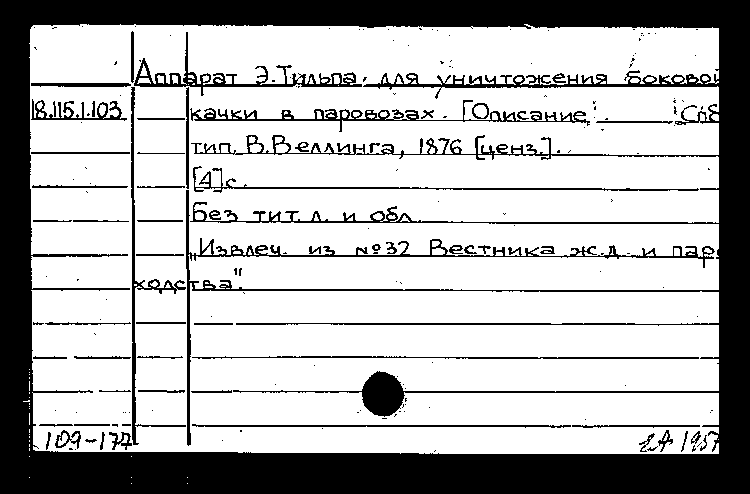 Аппарат Э. Тильпа, для уничтожения боковой
18.115.1.103 качки в паровозах. [Описание]. СПб
тип. В. Веллинга, 1876 [ценз.].
[4] с.
Без тит. л. и обл.
„Извлеч. из №32 Вестника ж.д. и паро
ходства".
109-177 1957